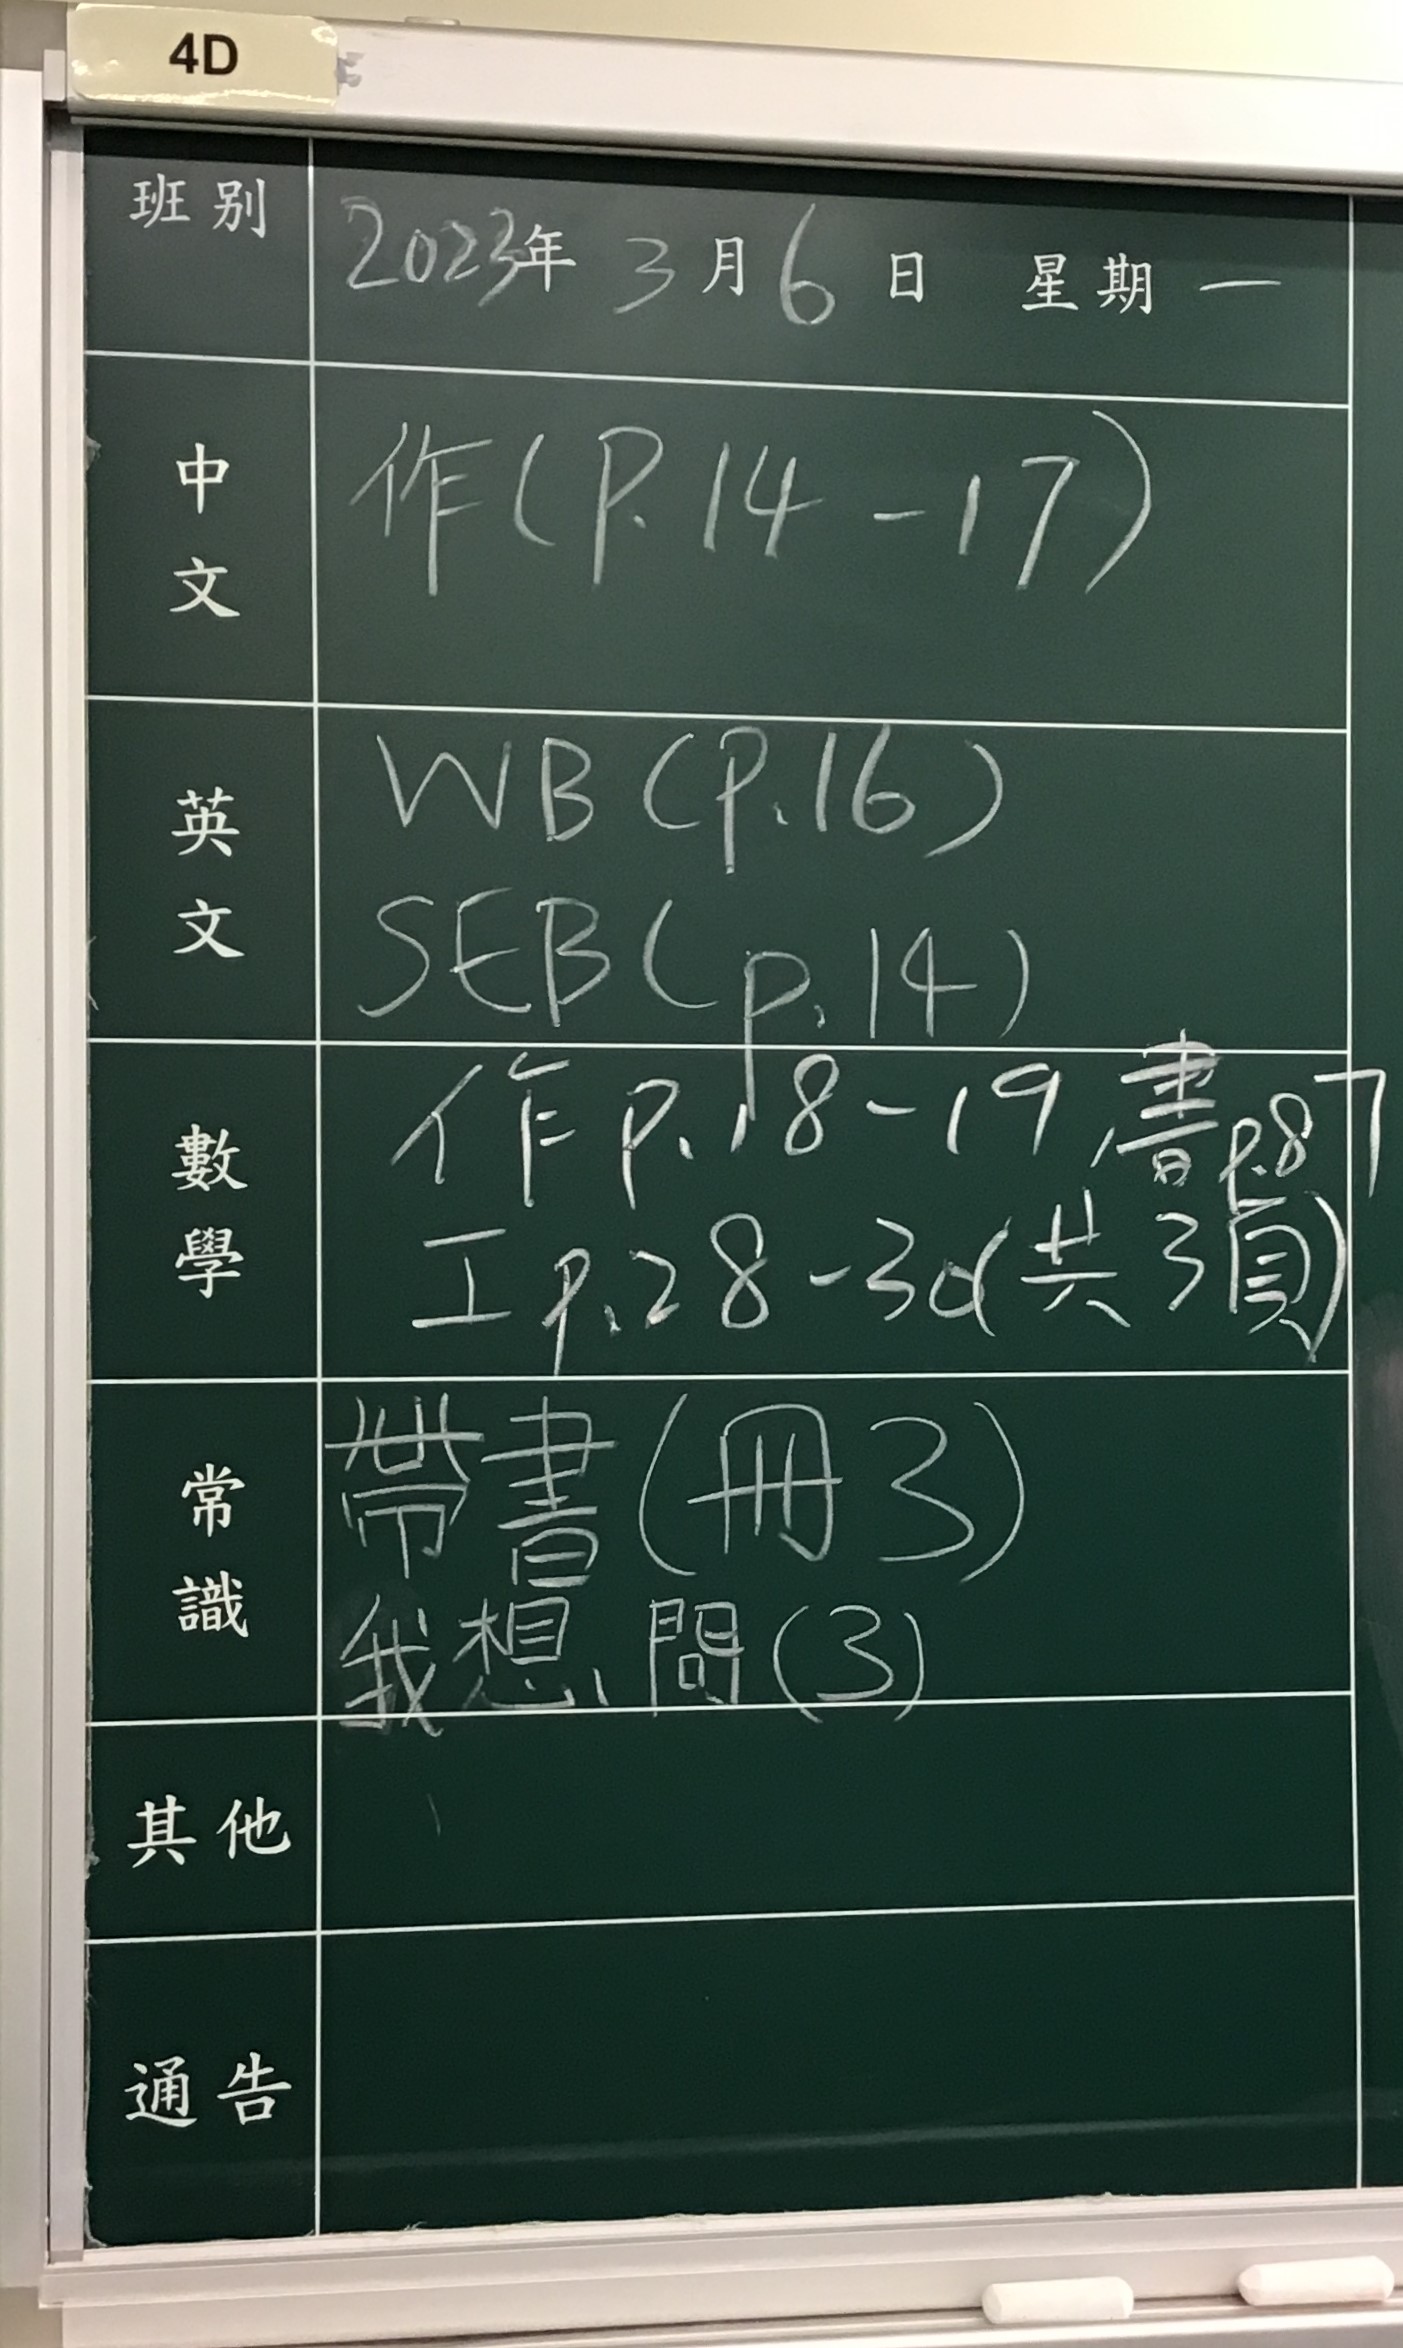 4D
班別 2023年 3月6日 星期一
中文 作(P.14-17)
英文 WB(P.16)
SEB(p.14)
數學 作p.18-19,書p.87
工p.28-30(共3頁)
常識 帶書(冊3)
我想問(3)
其他
通告